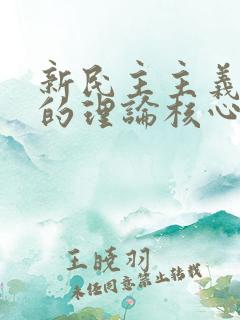 新民主主義
的理論核心
王曉羽
未經同意禁止轉載